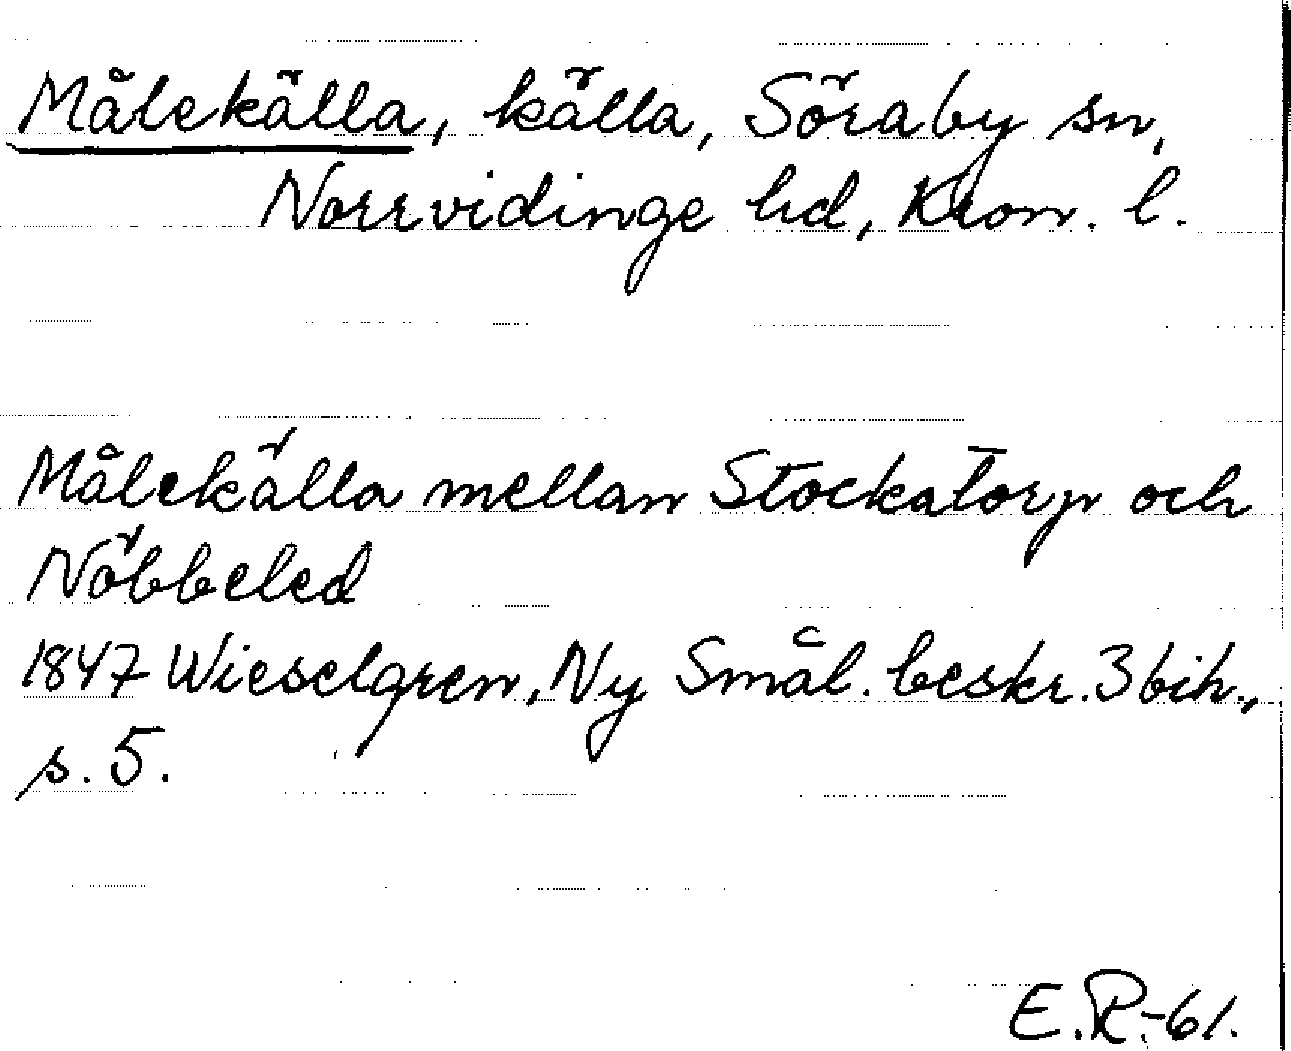 Målekälla, källa, Söraby sn,
Norrvidinge hd, Kron. l.
Målekälla mellan Stockatorp och
Nöbbeled
1847 Wieselgren, Ny Smål. beskr. 3 bih.,
s. 5.
E.R.-61.